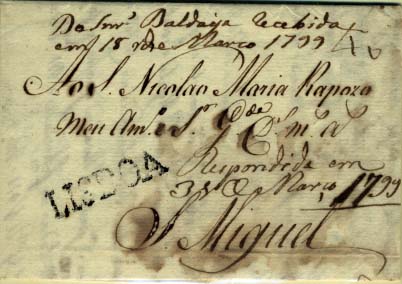 De Snr. Baldaya recebida
em 18 de Março 1799
Ao S. Nicolao Maria Rapozo
Meu Amo. e Sr. Gde. ms. as.
Respondida em
31 de Março 1799
LISBOA
S. Miguel